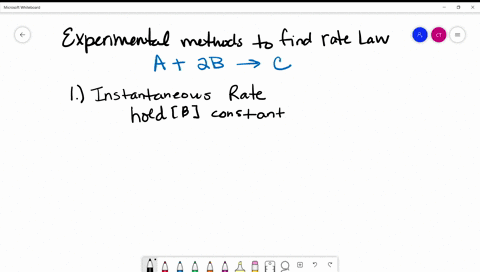 Microsoft Whiteboard
CT
Experimental methods to find rate Law
A + 2B → C
1.) Instantaneous Rate
hold [B] constant